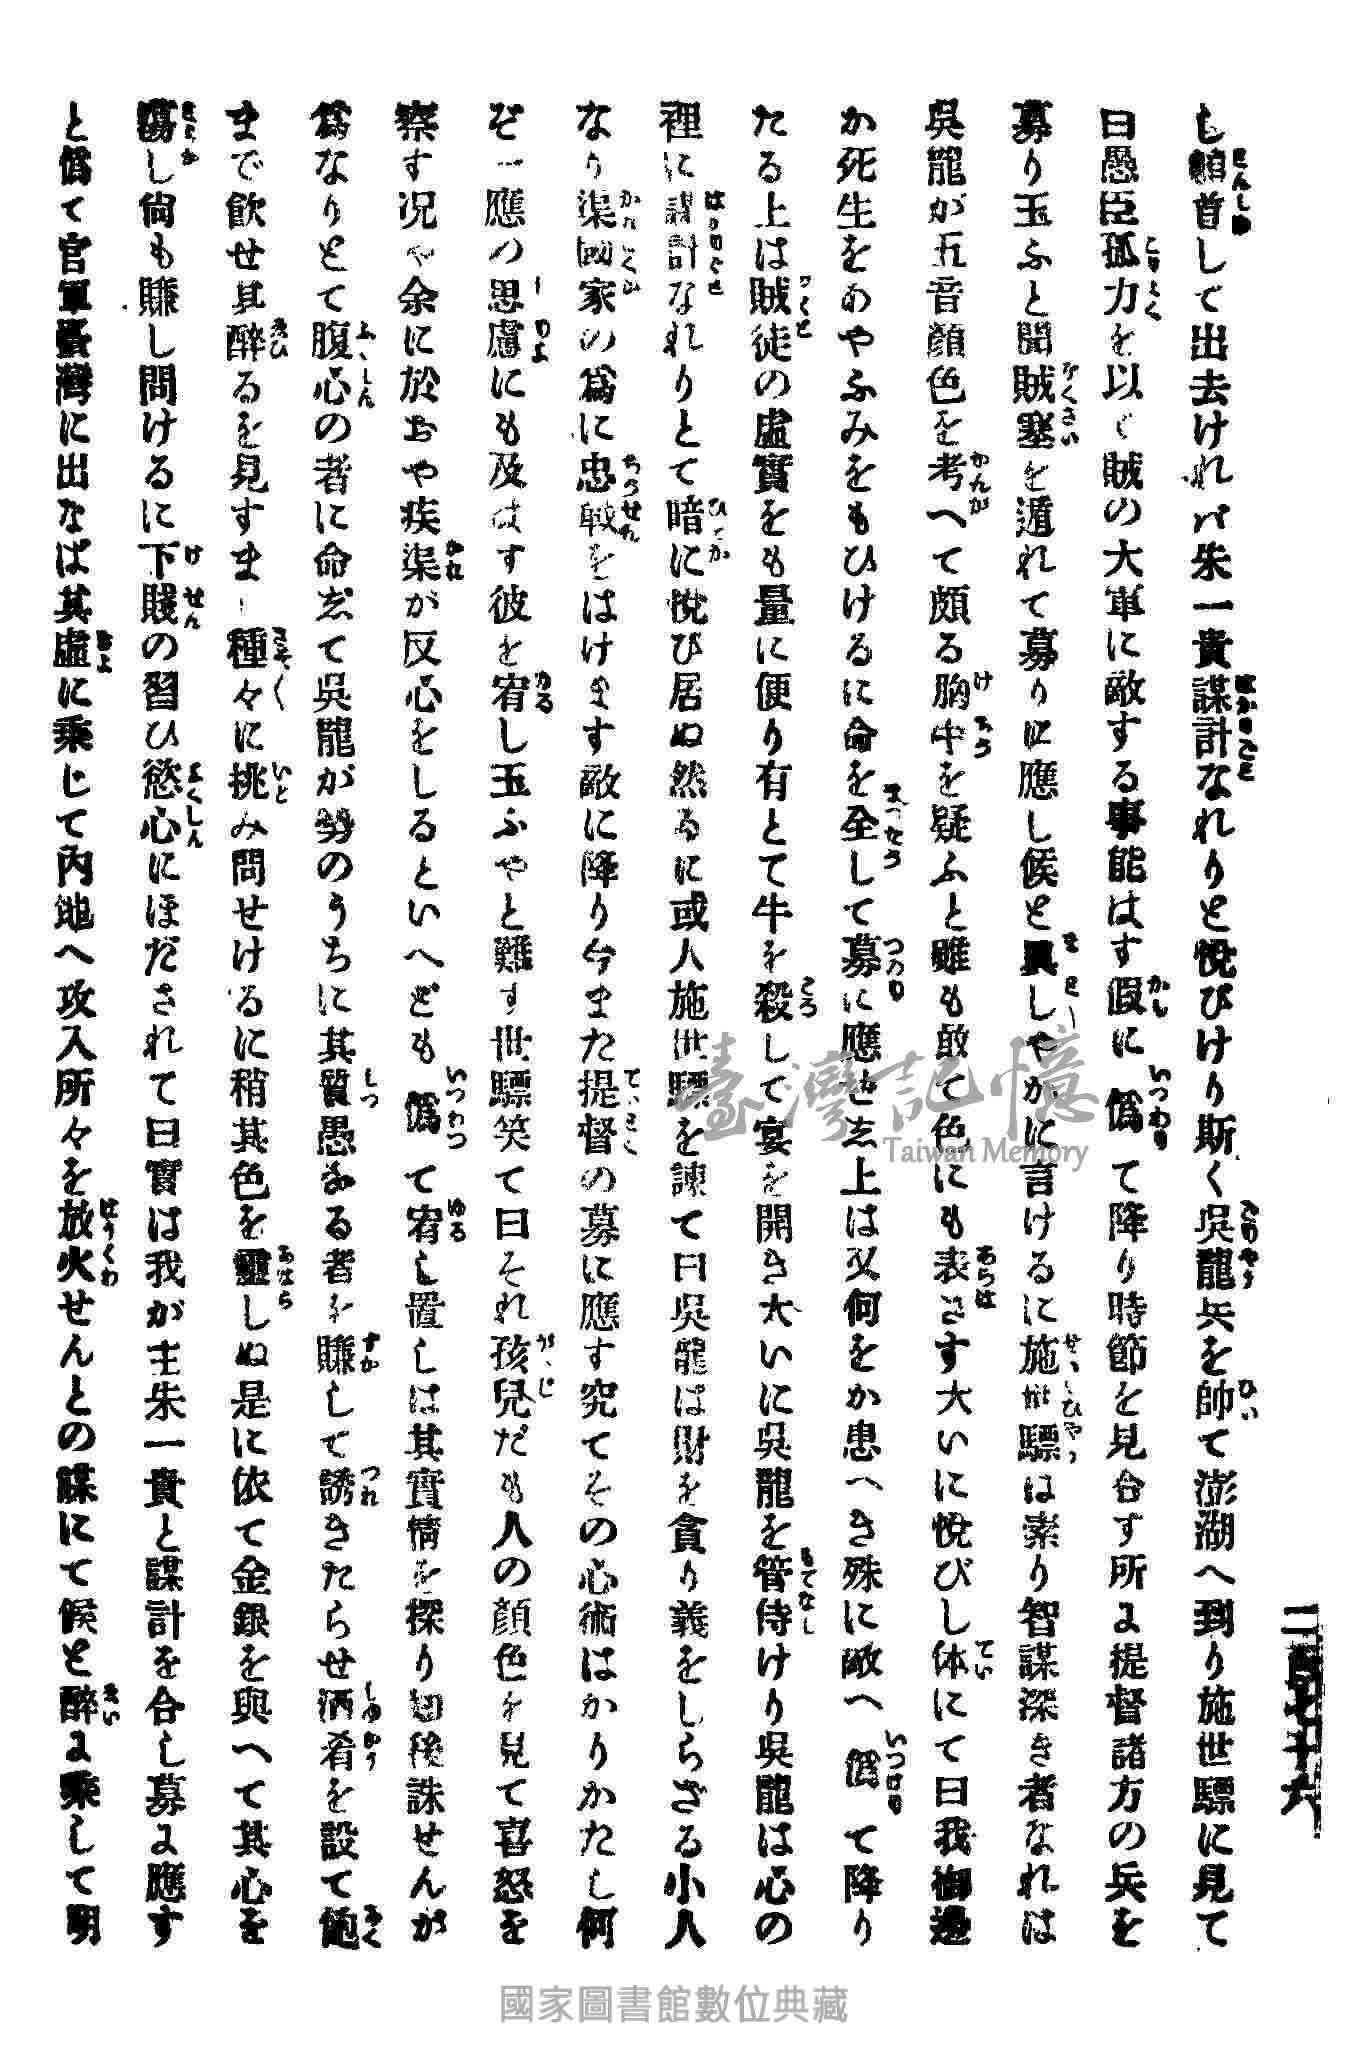 二百七十六
し頓首して出去けれバ朱一貴謀計なれりと悦びけり斯く吳龍兵を帥て澎湖へ到り施世驃に見て
曰愚臣孤力を以て賊の大軍に敵する事能はす假に僞て降り時節を見合す所に提督諸方の兵を
募り玉ふと聞賊塞を遁れて募りに應し候と しやかに言けるに施世驃は素り智謀深き者なれは
吳龍が五音顔色を考へて頗る胸中を疑ふと雖も敢て色にも表さす大いに悅びし体にて曰我御邊
か死生をあやふみをもひけるに命を全して募に應せし上は又何をか患へき殊に敵へ僞て降り
たる上は賊徒の虛實をも量に便り有とて牛を殺して宴を開き大いに吳龍を管待けり吳龍は心の
裡に謀計なれりとて暗に悅び居ぬ然るに或人施世驃を諫て曰吳龍は財を貪り義をしらざる小人
なり渠國家の爲に忠戰をはけます敵に降り今また提督の募に應す究てその心術はかりかたし何
ぞ一應の思慮にも及はす彼を宥し玉ふやと難す世驃笑て曰それ孩兒だも人の顔色を見て喜怒を
察す况や余に於おや疾渠が反心をしるといへども僞て宥し置しは其實情を探り 後誅せんが
爲なりとて腹心の者に命じて吳龍が勢のうちに其質愚なる者を賺して誘きたらせ酒肴を設て飽
まで飮せ其醉るを見すまし種々に挑み問せけるに稍其色を しぬ是に依て金銀を與へて其心を
蕩し尙も賺し問けるに下賤の習ひ慾心にほだされて曰實は我が主朱一貴と謀計を合し募に應す
と僞て官軍臺灣に出なば其虛に乘じて內地へ攻入所々を放火せんとの謀にて候と醉に乘して明
臺灣記憶
Taiwan Memory
國家圖書館數位典藏